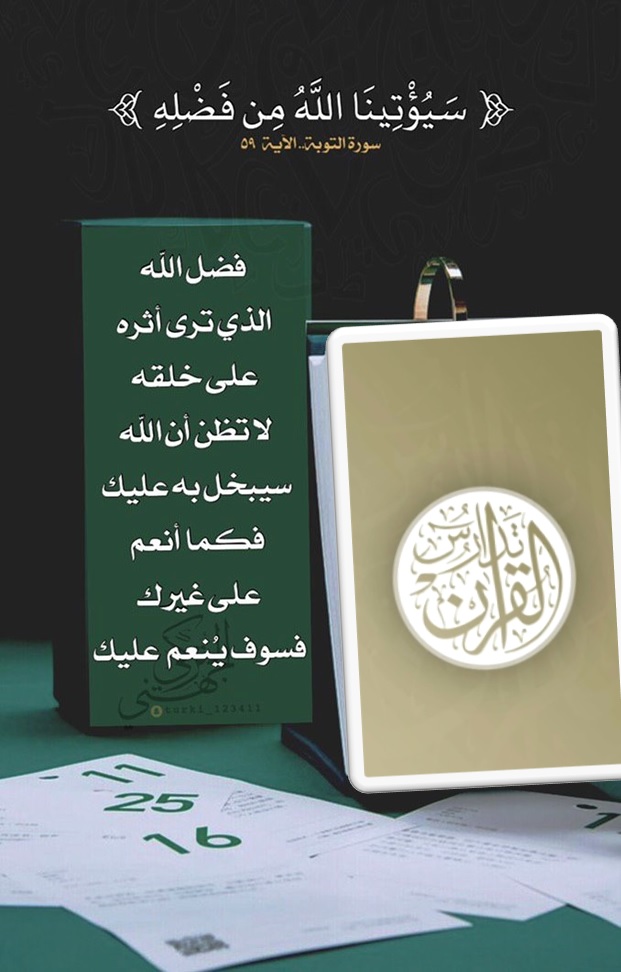 ﴿ سَيُؤْتِينَا اللَّهُ مِن فَضْلِهِ ﴾
سورة التوبة..الآية ٥٩
فضل الله
الذي ترى أثره
على خلقه
لا تظن أن الله
سيبخل به عليك
فكما أنعم
على غيرك
فسوف يُنعم عليك
تركي الجهني
turki_123411
تدارس القرآن
11
25
16